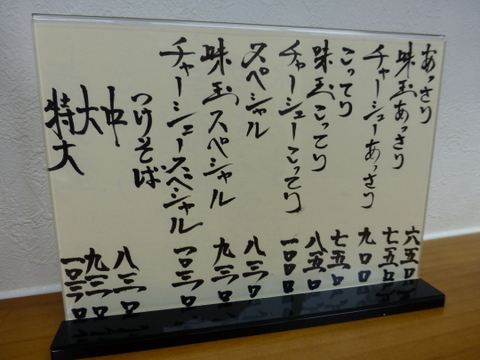 あっさり 六五〇
味玉あっさり 七五〇
チャーシューあっさり 九〇〇
こってり 七五〇
味玉こってり 八五〇
チャーシューこってり 一〇〇〇
スペシャル 八三〇
味玉スペシャル 九三〇
チャーシュースペシャル 一〇八〇
つけそば
中 八三〇
大 九三〇
特大 一〇三〇